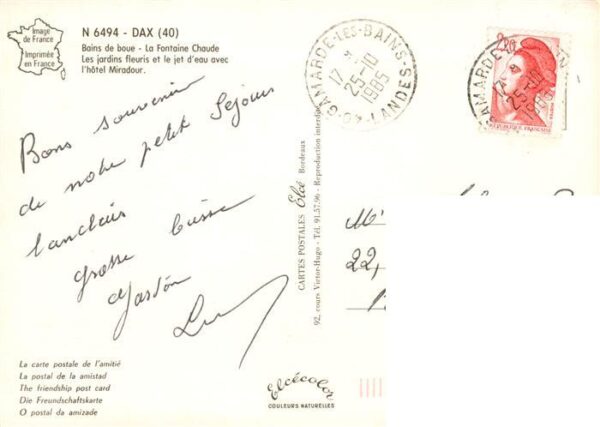 Image
de France
Imprimée
en France
N 6494 - DAX (40)
Bains de boue - La Fontaine Chaude
Les jardins fleuris et le jet d'eau avec
l'hôtel Miradour.
Bons souvenirs
de notre petit Séjour
landais
grosse bisse
Gaston
GAMARDE-LES-BAINS
17 H
25-10
1985
40-LANDES
2,20
REPUBLIQUE FRANÇAISE
CARTES POSTALES Elcé Bordeaux
92, cours Victor-Hugo - Tél. 91.57.96 - Reproduction interdite
22,
La carte postale de l'amitié
La postal de la amistad
The friendship post card
Die Freundschaftskarte
O postal da amizade
Elcécolor
COULEURS NATURELLES